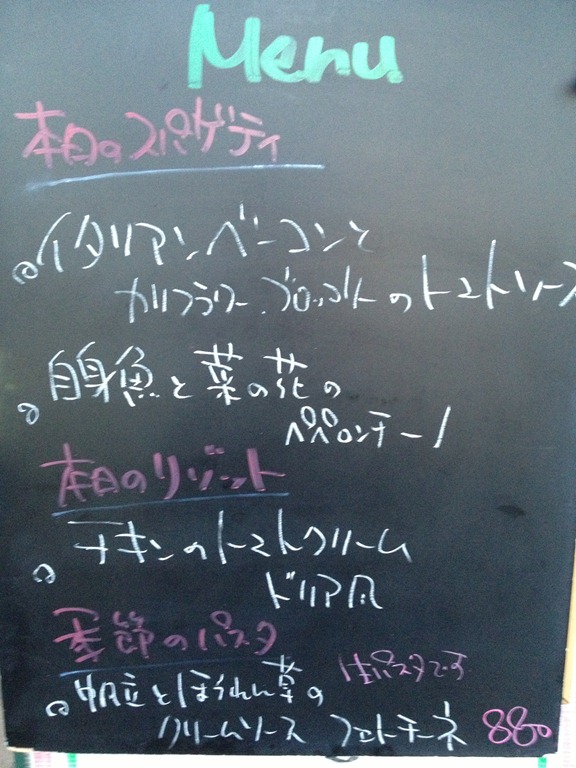 Menu
本日のスパゲティ
イタリアンベーコンと
カリフラワー、ブロッコリーのトマトソース
白身魚と菜の花の
ペペロンチーノ
本日のリゾット
チキンのトマトクリーム
ドリア風
季節のパスタ
生パスタです
帆立とほうれん草の
クリームソース フェトチーネ 880